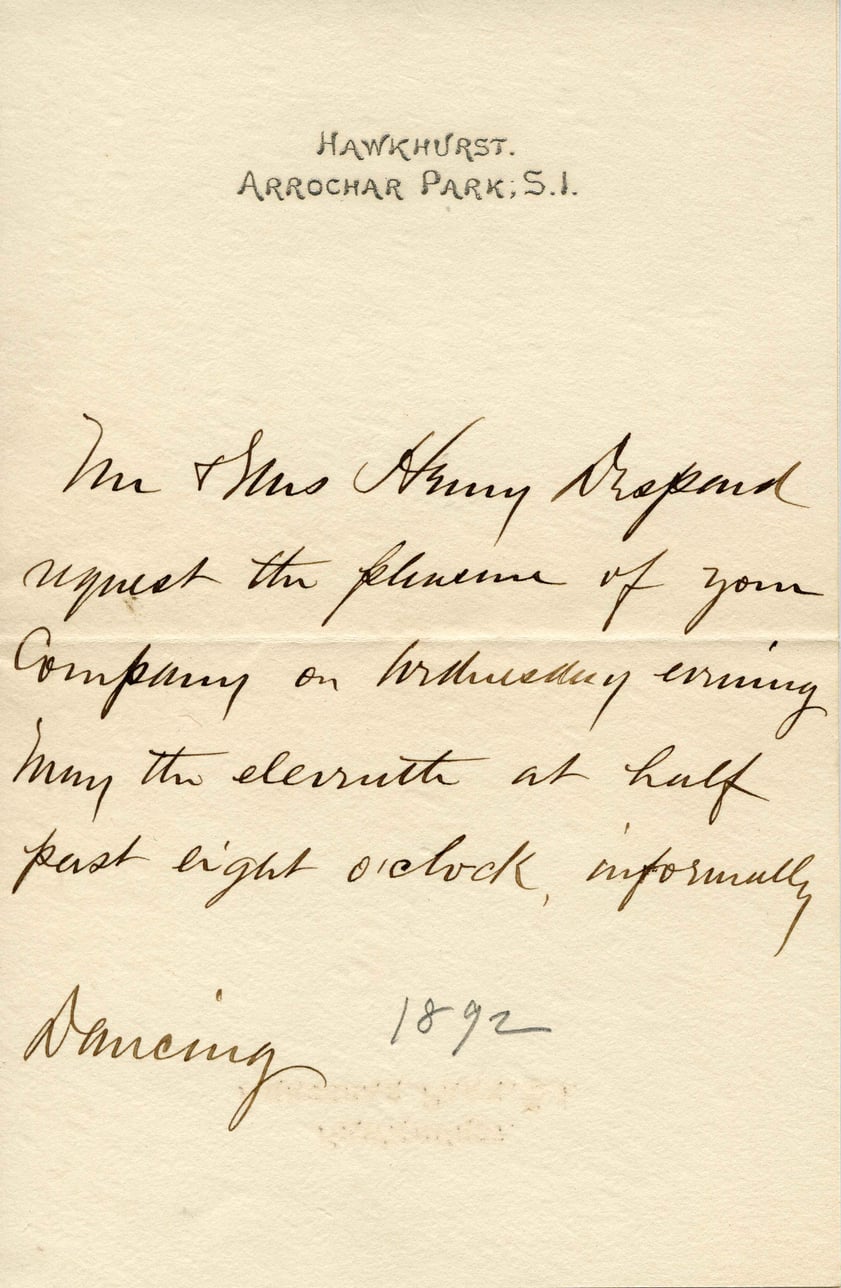 HAWKHURST.
ARROCHAR PARK, S.I.
Mr & Mrs Henry Despard
request the pleasure of your
Company on Wednesday evening
May the eleventh at half
past eight o'clock, informally
Dancing
1892